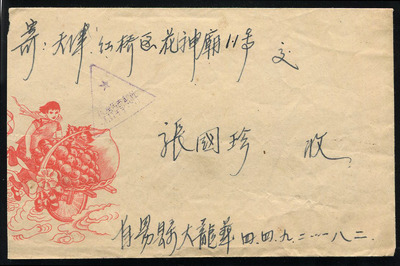 寄：天津．红桥区花神廟11号
交
張國珍．收
自易縣大龍華四.四.九.二一八二